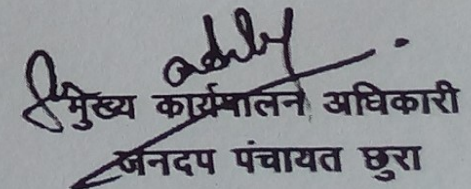 मुख्य कार्यपालन अधिकारी
जनदप पंचायत छुरा